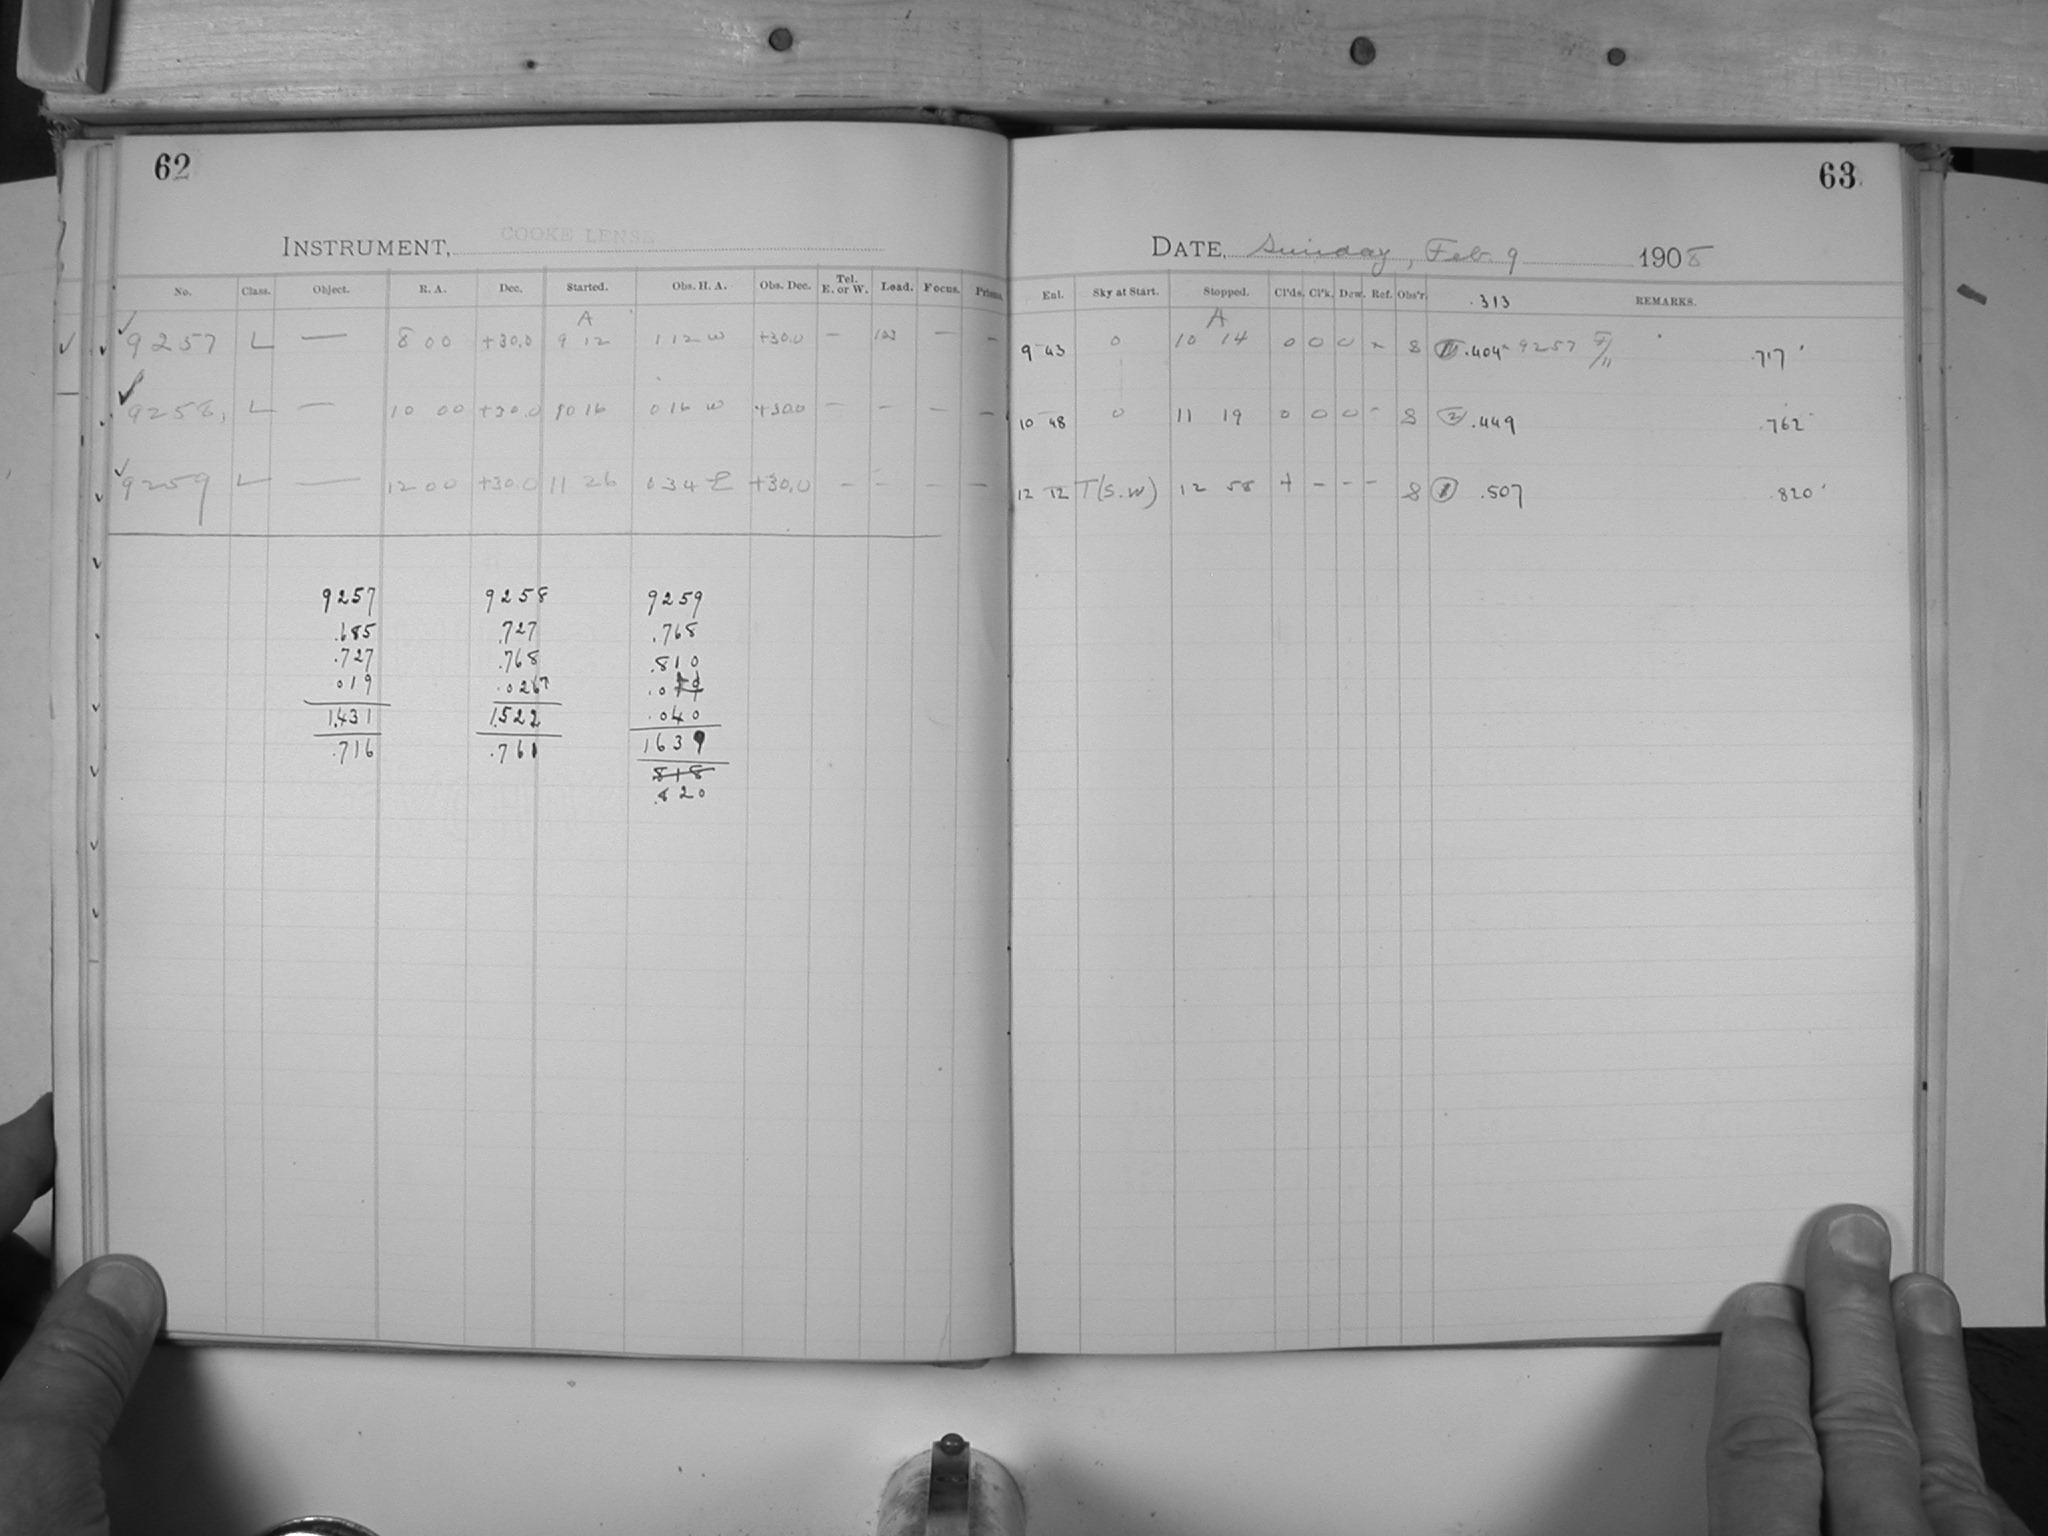 62
INSTRUMENT, COOKE LENSE
No. Class. Object. R. A. Dec. Started. Obs. H. A. Obs. Dec. Tel. E. or W. Load. Focus. Prisms.
9257 L — 8 00 +30.0 A 9 12 1 12 W +30.0 — 103 — —
9258 L — 10 00 +30.0 10 16 0 16 W +30.0 — — — —
9259 L — 12 00 +30.0 11 26 0 34 E +30.0 — — — —
9257 9258 9259
.685 .727 .768
.727 .768 .810
019 .026
.040
1.431 1.522 1639
.716 .761 818
.820
63
DATE, Sunday, Feb. 9 1908
Enl. Sky at Start. Stopped. Cl'ds. Cl'k. Dew. Ref. Obs'r. .313 REMARKS.
9 43 0 A 10 14 0 0 0 - S .404 9257 .717
10 48 0 11 19 0 0 0 - S 2 .449 .762
12 12 T(S.W) 12 58 + - - - S 1 .507 .820